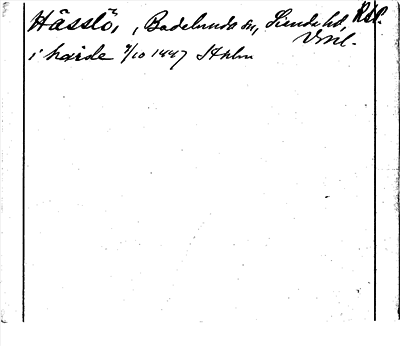 Hässlö, , Badelunda sn, Siende hd, RSP.
Vml.
i hæide 9/10 1447 Sthlm